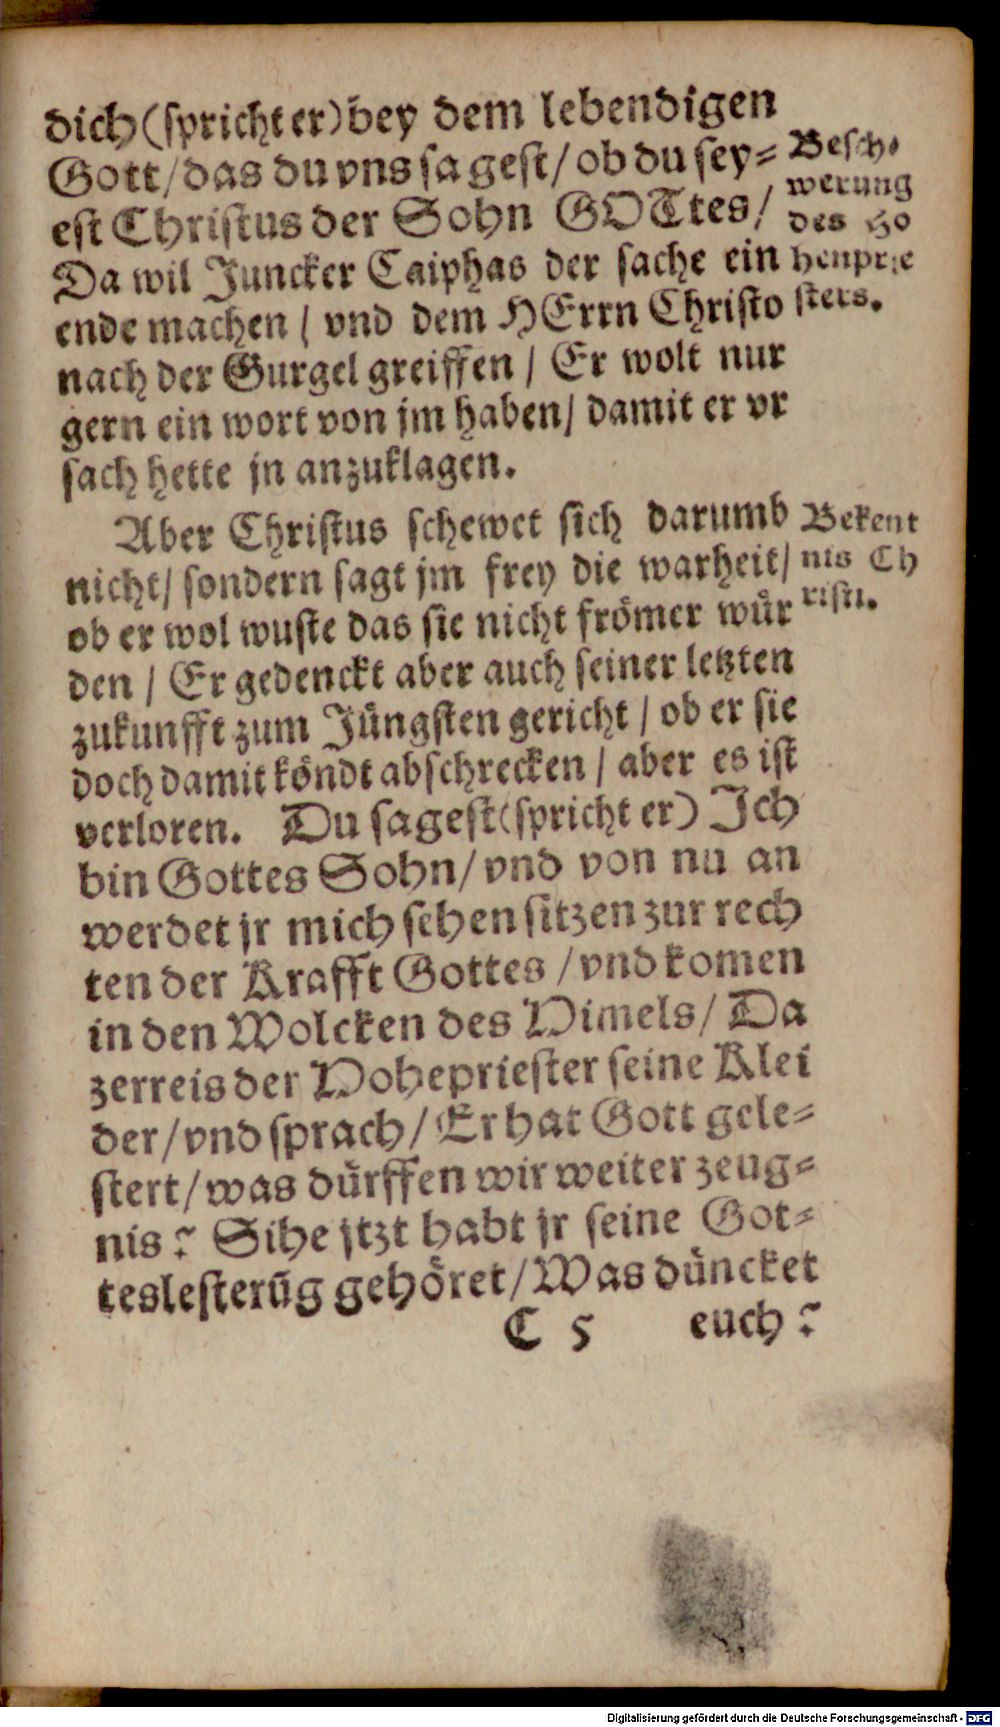 dich (spricht er) bey dem lebendigen
Gott / das du vns sagest / ob du sey⸗
est Christus der Sohn GOTtes /
Da wil Juncker Caiphas der sache ein
ende machen / vnd dem HErrn Christo
nach der Gurgel greiffen / Er wolt nur
gern ein wort von jm haben / damit er vr
sach hette jn anzuklagen.
Besch⸗
werung
des Ho
henprie
sters.
Aber Christus schewet sich darumb
nicht / sondern sagt jm frey die warheit /
ob er wol wuste das sie nicht frömer wür
den / Er gedenckt aber auch seiner letzten
zukunfft zum Jüngsten gericht / ob er sie
doch damit köndt abschrecken / aber es ist
verloren. Du sagest (spricht er) Ich
bin Gottes Sohn / vnd von nu an
werdet jr mich sehen sitzen zur rech
ten der Krafft Gottes / vnd komen
in den Wolcken des Himels / Da
zerreis der Hohepriester seine Klei
der / vnd sprach / Er hat Gott gele⸗
stert / was dürffen wir weiter zeug⸗
nis? Sihe jtzt habt jr seine Got⸗
teslesterūg gehöret / Was düncket
Bekent
nis Ch
risti.
C 5 euch?
Digitalisierung gefördert durch die Deutsche Forschungsgemeinschaft - DFG